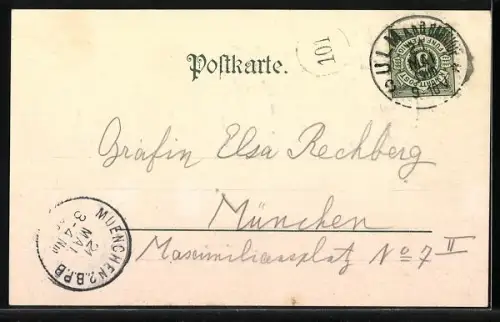 101
Postkarte.
ULM
Gräfin Elsa Rechberg
München
Maximiliansplatz No 7 II
MUENCHEN 2.B.P.B
21
MAI
3-4 Nm